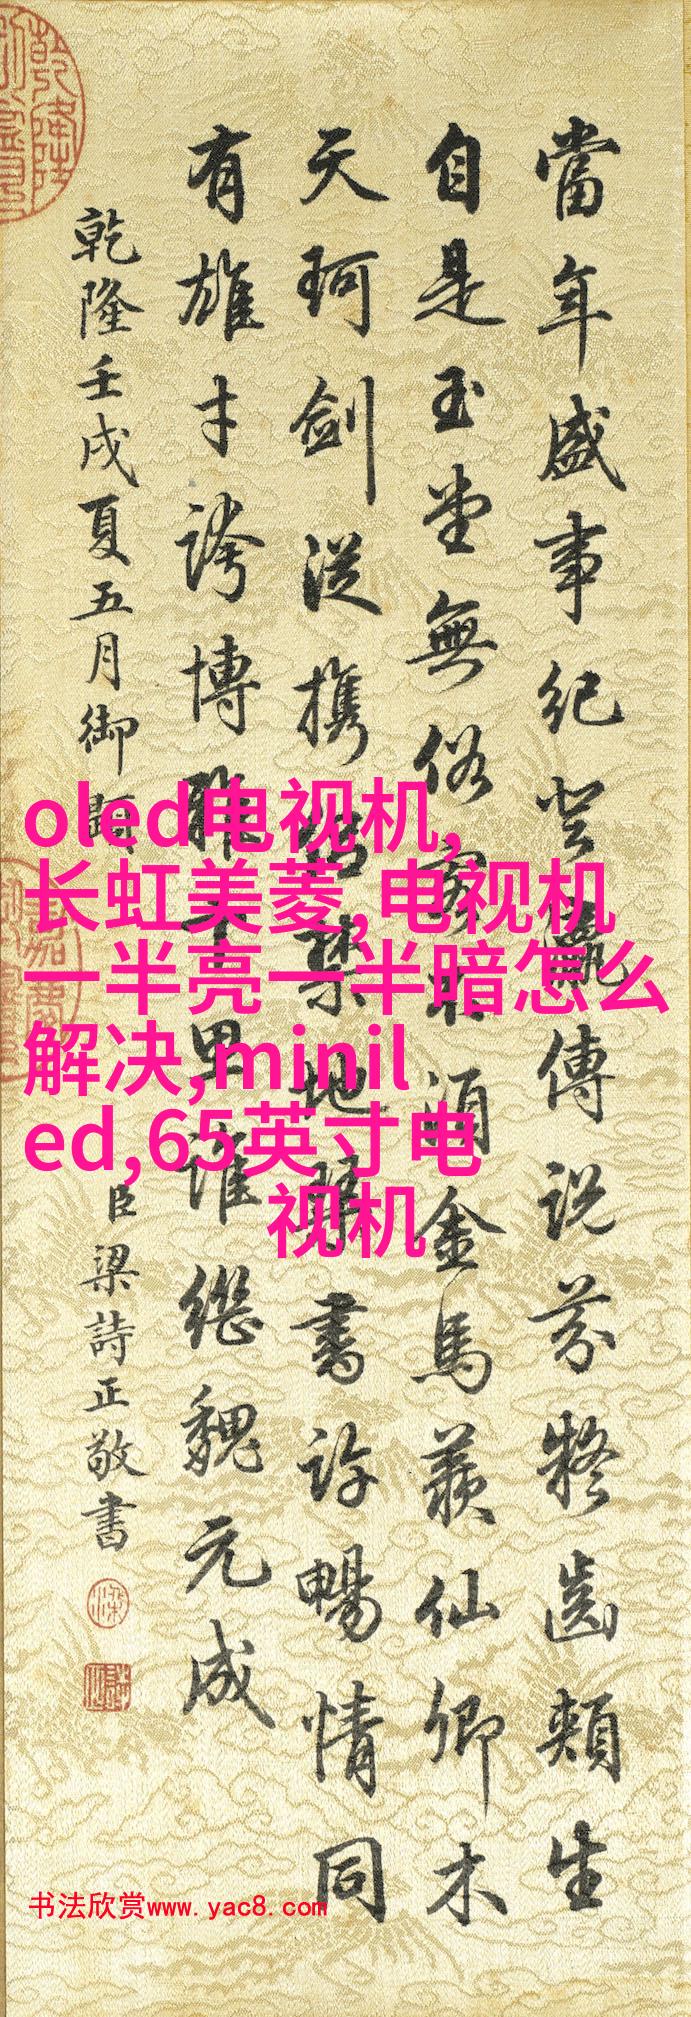 當年盛事紀登瀛傳説芬齒頰生
自是玉堂無俗客須金馬羨仙卿木
天珂剑從攜禁地琴書許暢情同
有雄才誇博雅里誰繼魏元成
乾隆壬戌夏五月御題
臣梁詩正敬書
oled电视机,
长虹美菱,电视机
一半亮一半暗怎么
解决,minil
ed,65英寸电
视机
书法欣赏www.yac8.com